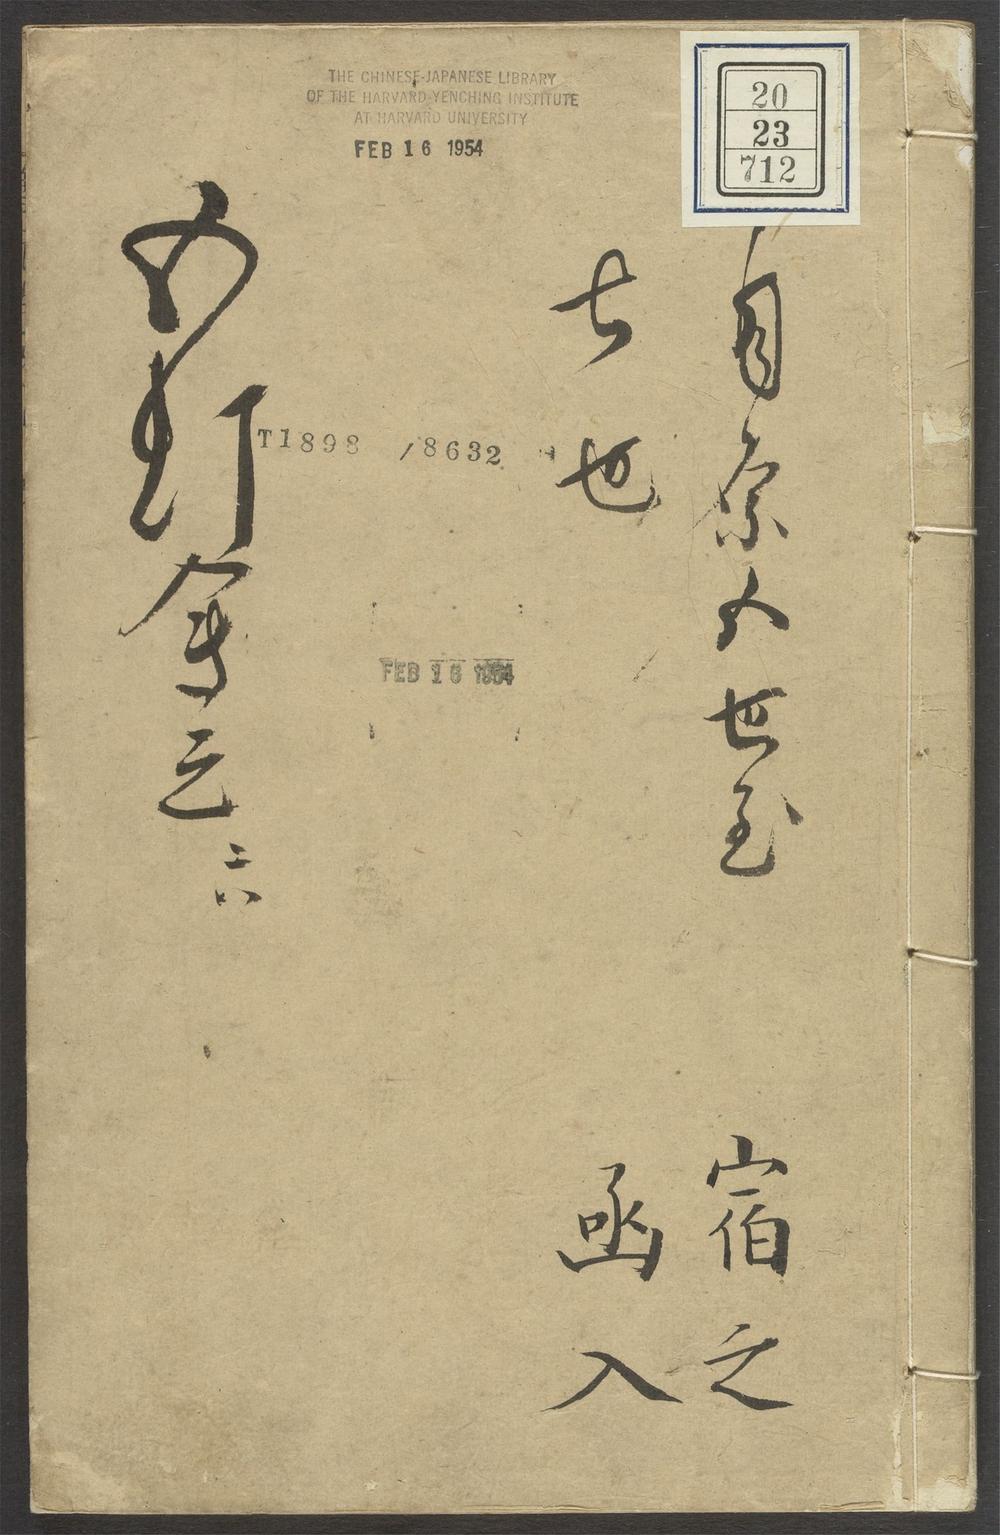 THE CHINESE-JAPANESE LIBRARY
OF THE HARVARD-YENCHING INSTITUTE
AT HARVARD UNIVERSITY
FEB 16 1954
20
23
712
青原五世至
七世
宿之
函入
T1898 /8632
FEB 16 1954
五灯會元